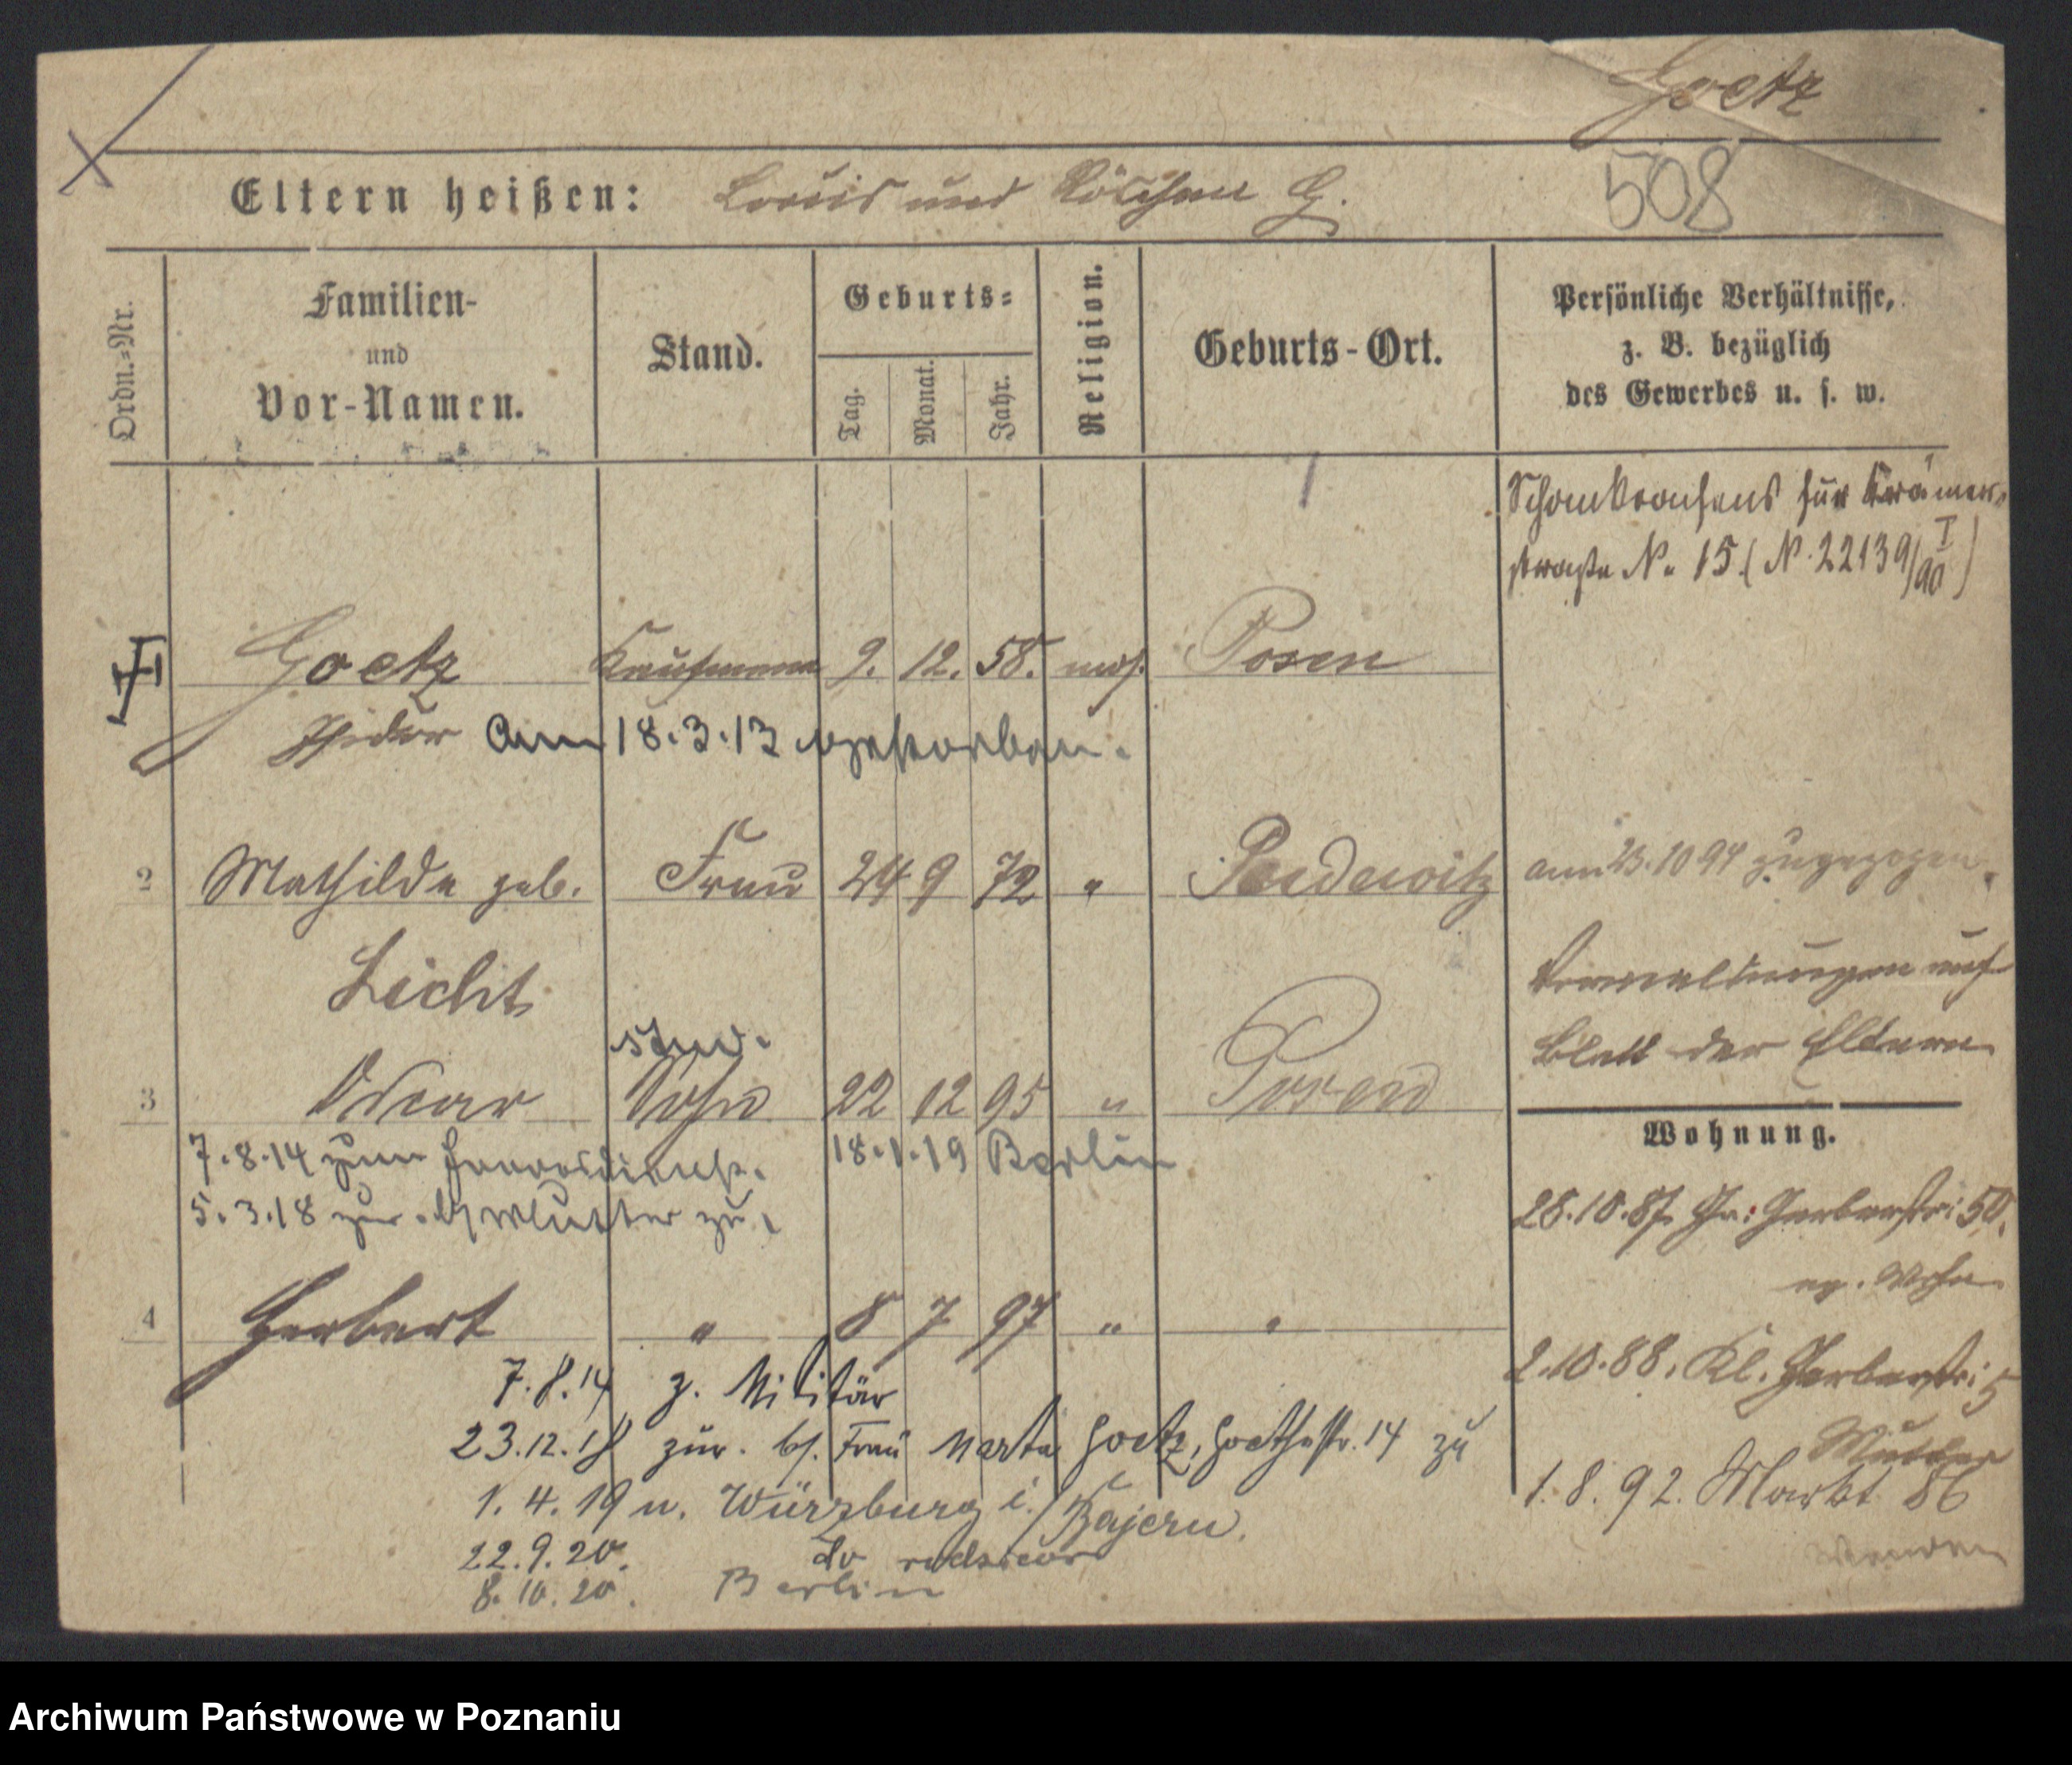 Goetz
508
Eltern heißen: Louis und Röschen G.
Ordn.=Nr.
Familien-
und
Vor-Namen.
Stand.
Geburts=
Tag.
Monat.
Jahr.
Religion.
Geburts-Ort.
Persönliche Verhältnisse,
z. B. bezüglich
des Gewerbes u. s. w.
Schankconsens für Krämer-
straße N. 15 (N. 22139/90 I)
Goetz Kaufmann 9. 12. 58. mos. Posen
Isidor Am 18.3.13 verstorben.
2 Mathilde geb. Frau 24 9 72 " Pudewitz am 23.10 94 zugezogen.
Licht
auf
Blatt der Eltern
stud.
3 Oscar Sohn 22 12 95 " Posen
Wohnung.
7.8.14 zum Heeresdienst. 18.1.19 Berlin
5.3.18 zur. b/ Mutter zu.
28.10.87. Gr: Gerberstr: 50.
4 Herbert " 8 7 97 " "
2.10.88. Kl. Gerberstr: 5
Mutter
7.8.14 z. Militär
23.12.18 zur. b/. Frau Marta Goetz, Goethestr. 14 zu
1.8.92. Markt 86
1.4.19 n. Würzburg i./Bajern.
22.9.20. do
8.10.20. Berlin
Archiwum Państwowe w Poznaniu